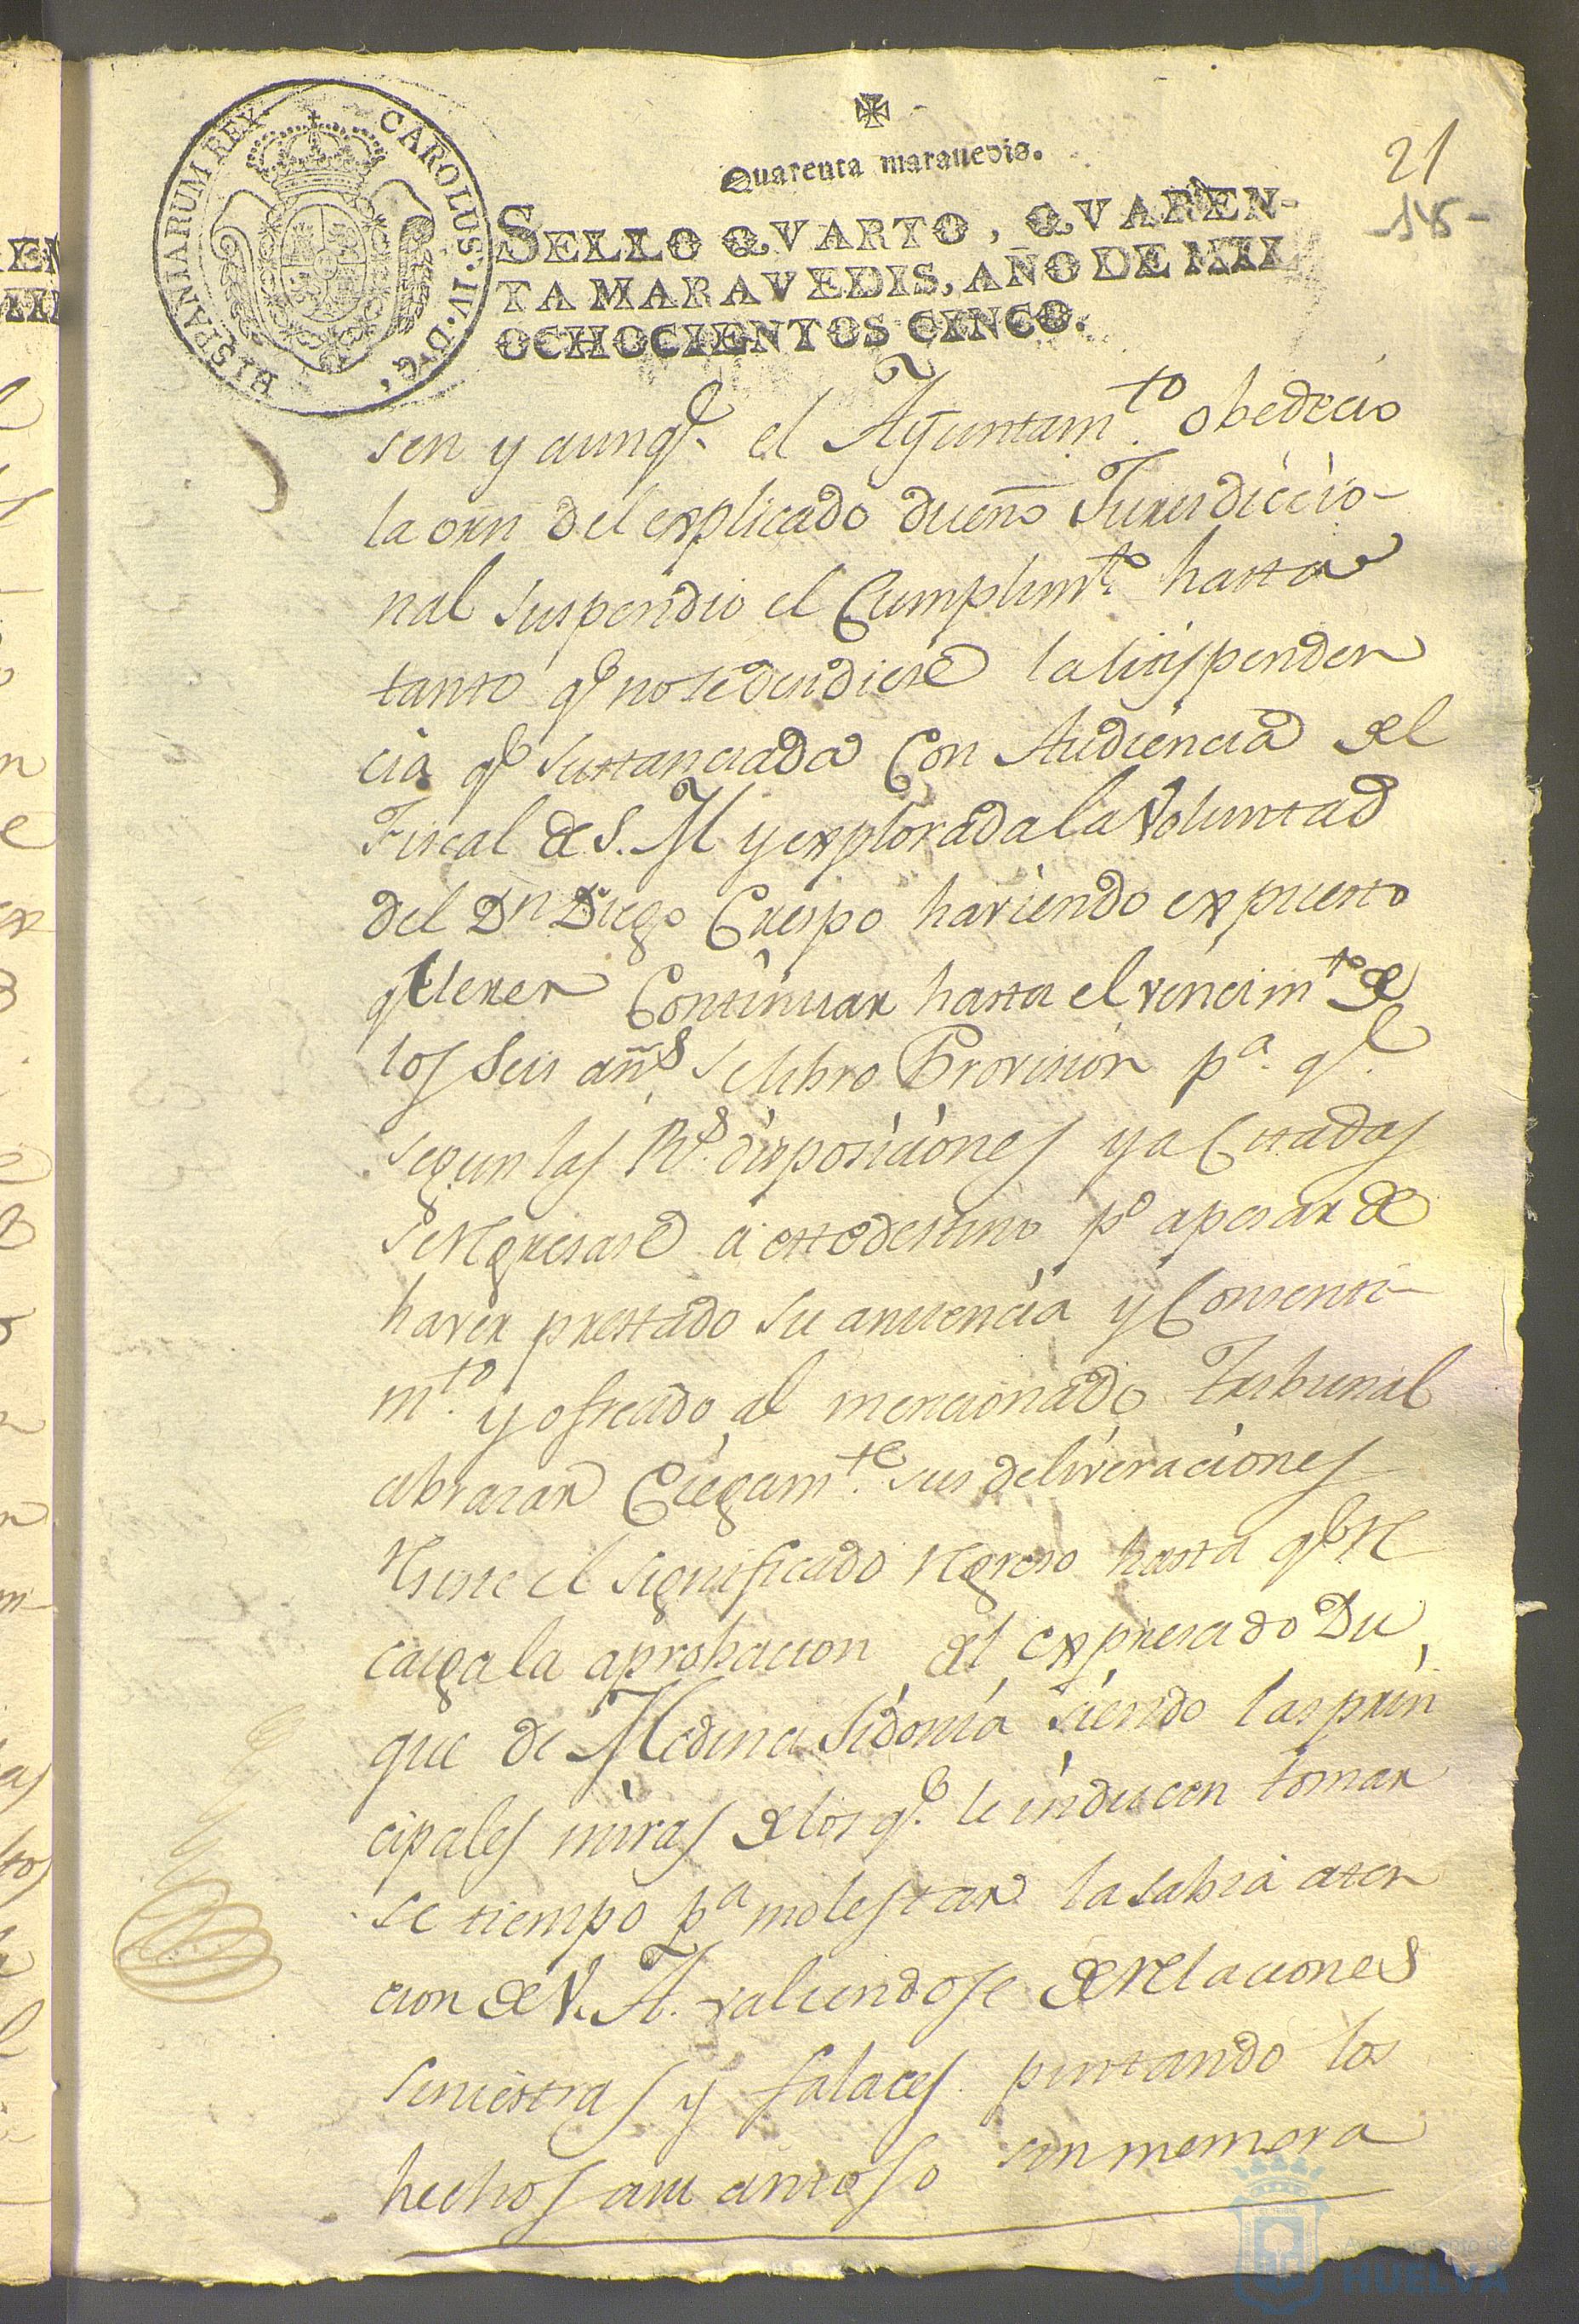 HISPANIARUM REX CAROLUS·IV·D·G·
Quarenta marauedis.
21
145
SELLO QVARTO, QVAREN-
TA MARAVEDIS, AÑO DE MIL
OCHOCIENTOS CINCO.
sen y aunq.e el Ayuntam.to obedecio
la orn del explicado dueño Jurisdiccio-
nal suspendio el Cumplim.to hasta
tanto q.e no se decidiese la litispenden
cia q.e sustanciada Con Audiencia del
Fiscal de S. M y explorada la Voluntad
del Dn Diego Crespo haviendo expuesto
querer Continuar hasta el vencim.to de
los seis añ.s se libro Provision p.a q.e
segun las R.s disposiciones ya Citadas
se regresase a este destino p.o apesar de
haver prestado su anuencia y Consenti-
m.to y ofrecido al mencionado Tribunal
abrazar Ciegam.te sus deliveraciones
resiste el significado regreso hasta q.e re
caiga la aprobacion del expresado Du
que de Medina Sidonia siendo las prin
cipales miras de los q.e le inducen tomar
se tiempo p.a molestar la sabia aten
cion de V. A. valiendose de relaciones
siniestras y falaces pintando los
hechos a su antojo sin memora
Ayuntamiento de
HUELVA